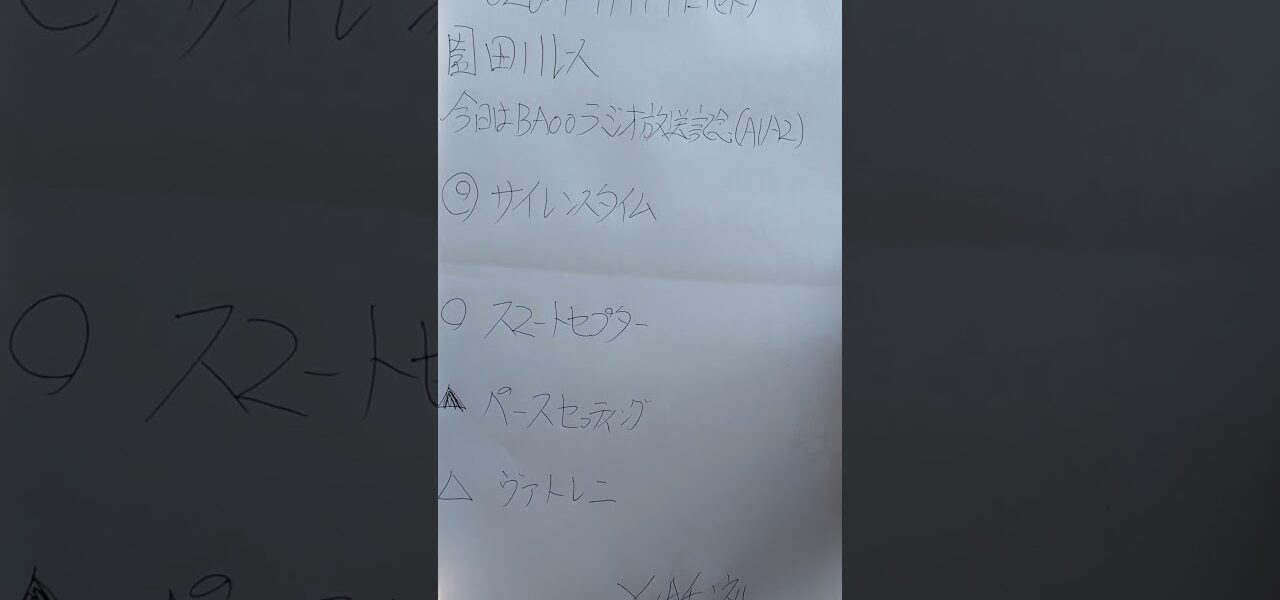 園田11レース
今日はBAOOラジオ放送記念(A1A2)
◎ サイレンスタイム
○ スマートセプター
▲ ペースセッティング
△ ヴァトレニ